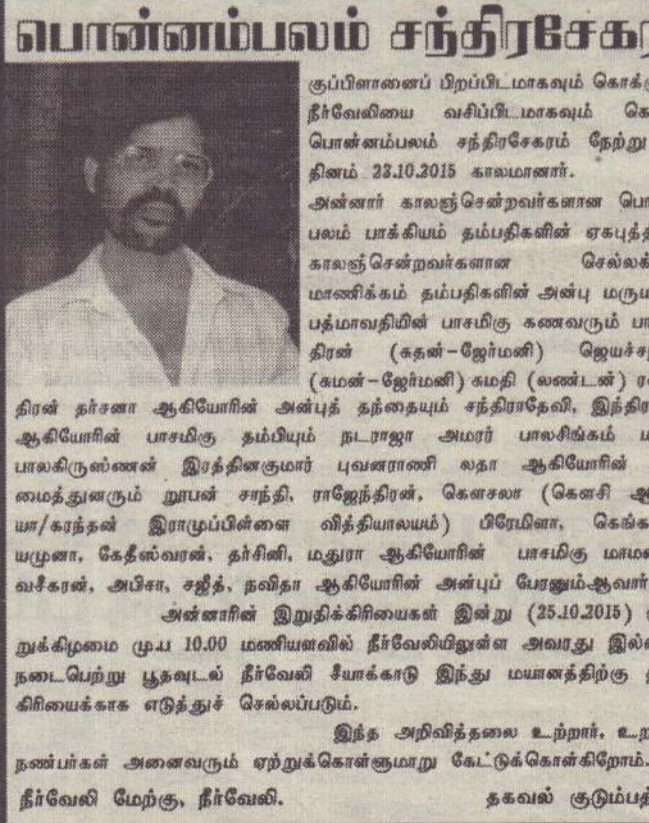 பொன்னம்பலம் சந்திரசேகர
குப்பிளானைப் பிறப்பிடமாகவும் கொக்கு
நீர்வேலியை வசிப்பிடமாகவும் கொ
பொன்னம்பலம் சந்திரசேகரம் நேற்று
தினம் 23.10.2015 காலமானார்.
அன்னார் காலஞ்சென்றவர்களான பொ
பலம் பாக்கியம் தம்பதிகளின் ஏகபுத்
காலஞ்சென்றவர்களான செல்லக்
மாணிக்கம் தம்பதிகளின் அன்பு மரும
பத்மாவதியின் பாசமிகு கணவரும் பா
திரன் (சுதன்-ஜேர்மனி) ஜெயச்ச
(சுமன்-ஜேர்மனி) சுமதி (லண்டன்) ர
திரன் தர்சனா ஆகியோரின் அன்புத் தந்தையும் சந்திராதேவி, இந்திர
ஆகியோரின் பாசமிகு தம்பியும் நடராஜா அமரர் பாலசிங்கம் ம
பாலகிருஸ்ணன் இரத்தினகுமார் புவனராணி லதா ஆகியோரின்
மைத்துனரும் றூபன் சாந்தி, ராஜேந்திரன், கௌசலா (கௌசி ஆ
யா/கரந்தன் இராமுப்பிள்ளை வித்தியாலயம்) பிரேமிளா, கெங்க
யமுனா, கேதீஸ்வரன், தர்சினி, மதுரா ஆகியோரின் பாசமிகு மாம
வசீகரன், அபிசா, சஜீத், நவிதா ஆகியோரின் அன்புப் பேரனும்ஆவார்
அன்னாரின் இறுதிக்கிரியைகள் இன்று (25.10.2015)
றுக்கிழமை மு.ப 10.00 மணியளவில் நீர்வேலியிலுள்ள அவரது இல்
நடைபெற்று பூதவுடல் நீர்வேலி சீயாக்காடு இந்து மயானத்திற்கு
கிரியைக்காக எடுத்துச் செல்லப்படும்.
இந்த அறிவித்தலை உற்றார், உற
நண்பர்கள் அனைவரும் ஏற்றுக்கொள்ளுமாறு கேட்டுக்கொள்கிறோம்.
நீர்வேலி மேற்கு, நீர்வேலி. தகவல் குடும்பத்